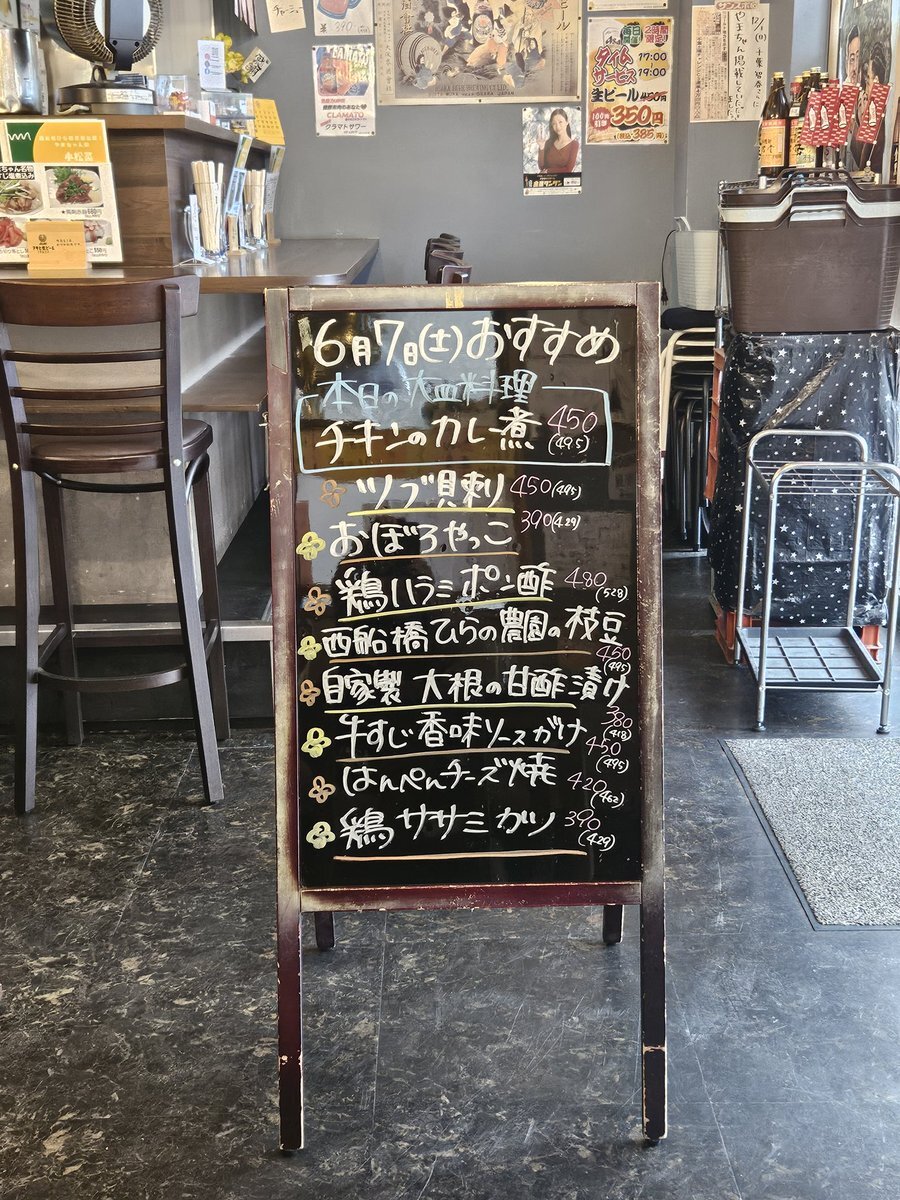 チャーシュー
CLAMATO
クラマトサワー
毎日開催
2時間限定
タイム
サービス
17:00
19:00
生ビール 450円
100円引き
350円
(税込)385円
小松菜
6月7日(土)おすすめ
本日の大皿料理
チキンのカレー煮 450
(495)
ツブ貝刺 450(495)
おぼろやっこ 390(429)
鶏ハラミポン酢 480
(528)
西船橋ひらの農園の枝豆
450
(495)
自家製 大根の甘酢漬け
380
(418)
牛すじ香味ソースがけ 450
(495)
はんぺんチーズ焼 420
(462)
鶏ササミカツ 390
(429)